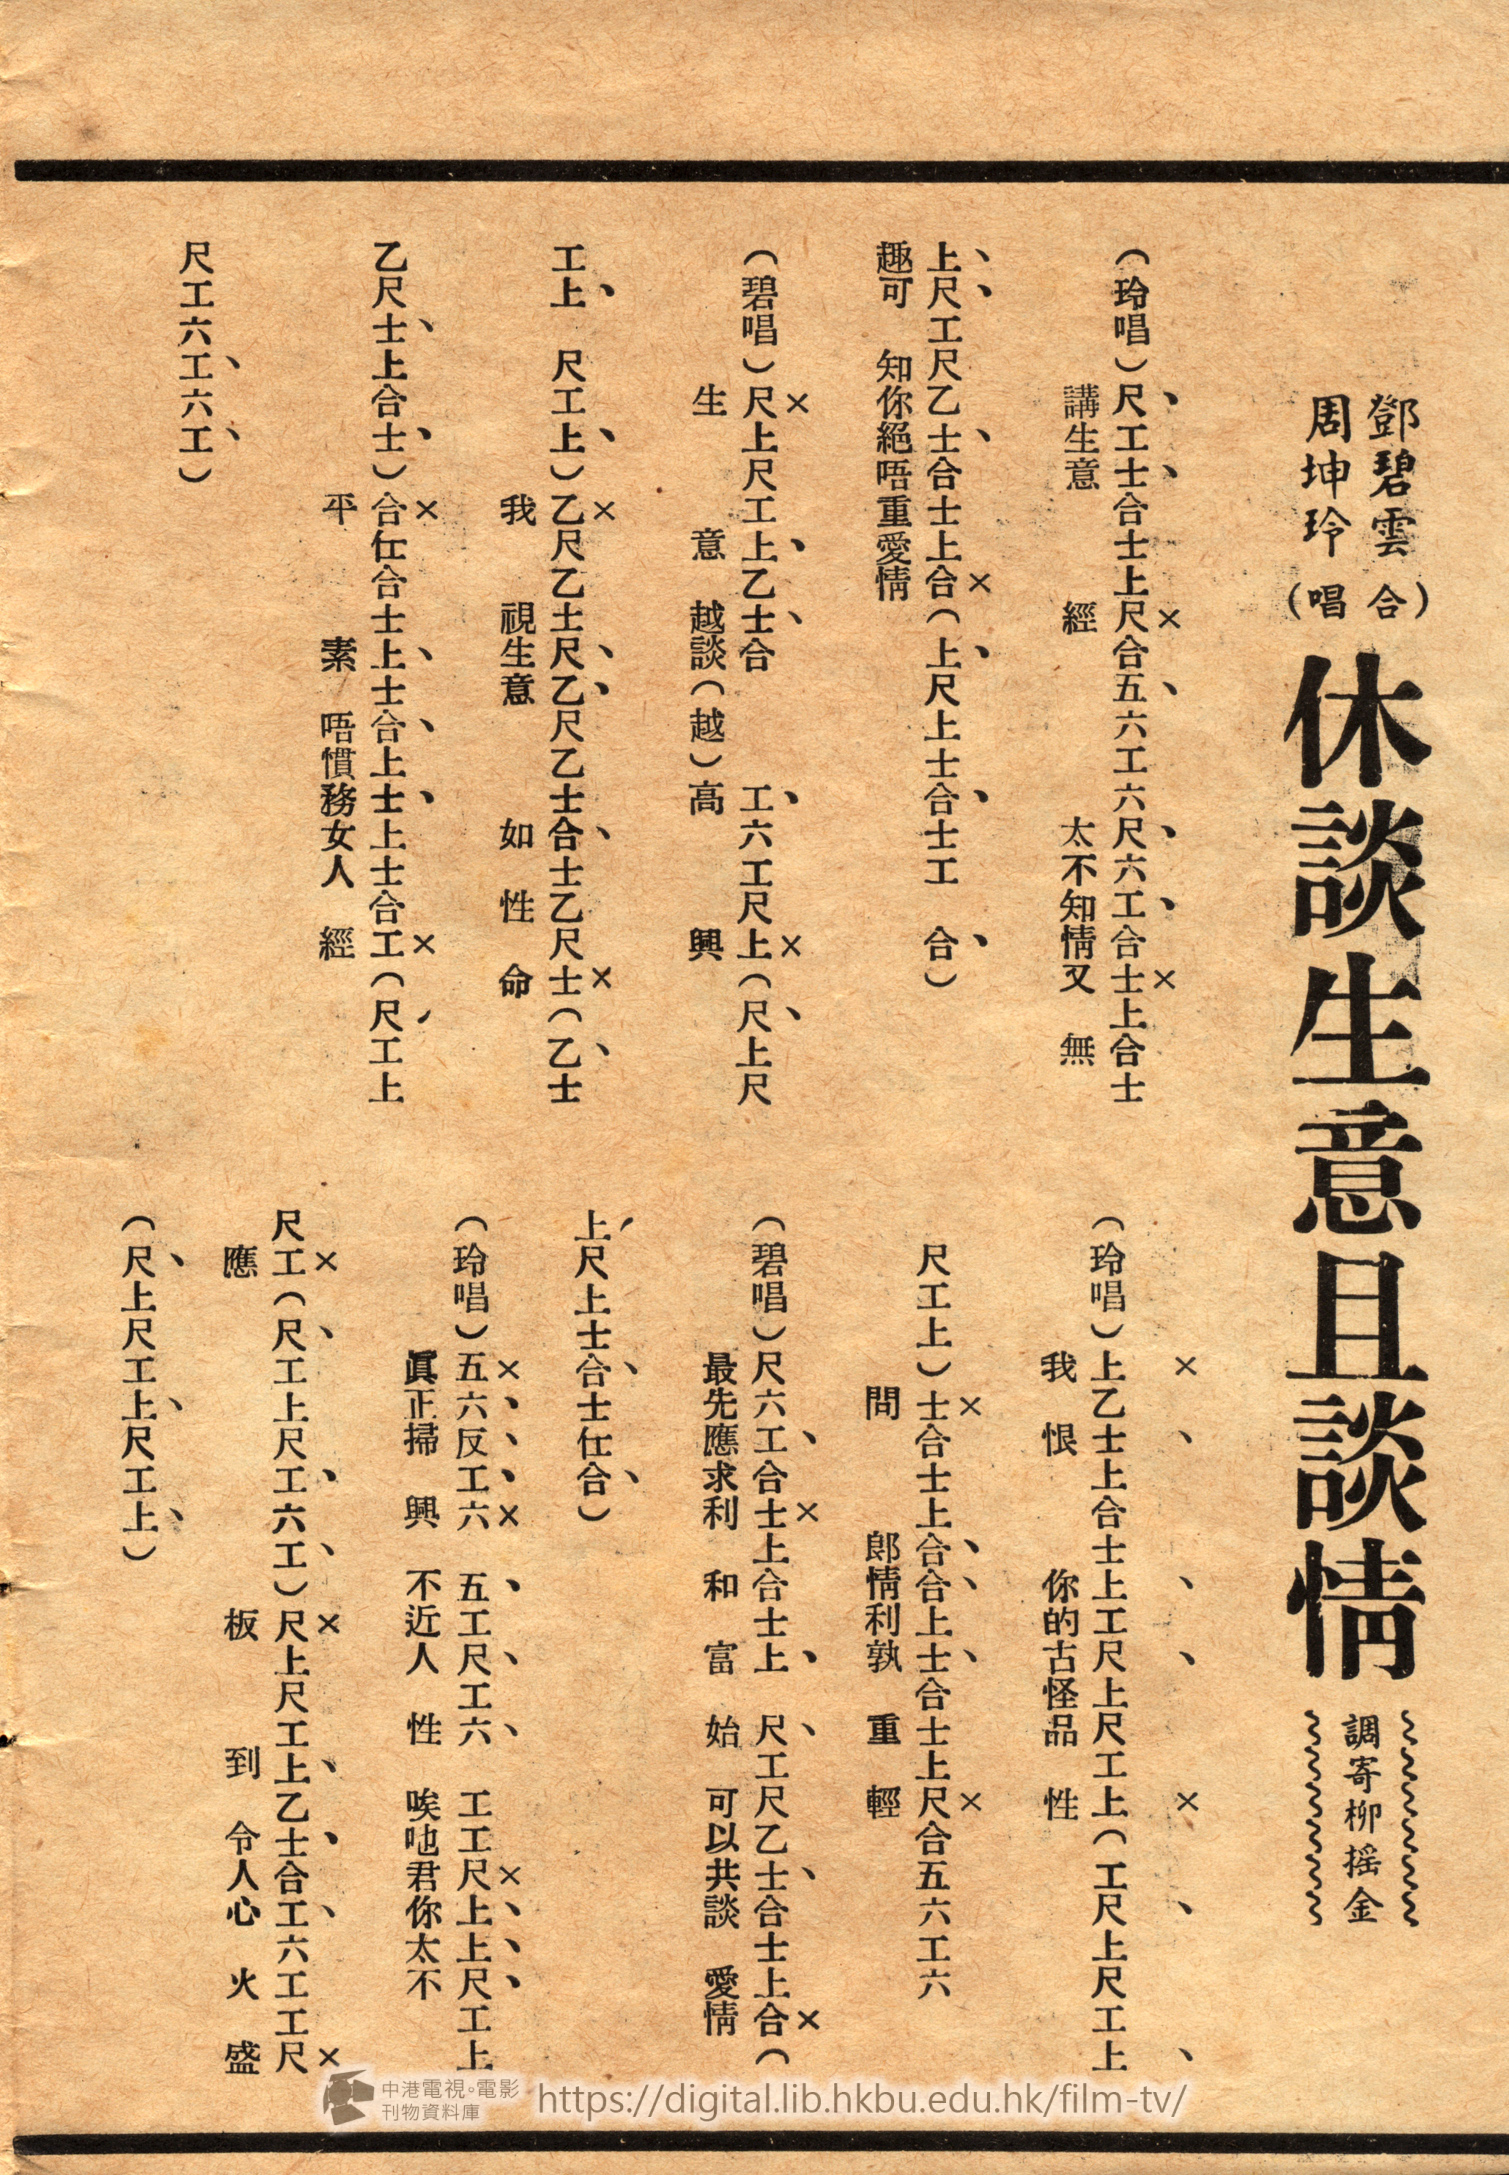 鄧碧雲
周坤玲
(合唱)
休談生意且談情
調寄柳搖金
(玲唱)尺工士合士上尺合五六工六尺六工合士上合士
講生意經太不知情又無
上尺工尺乙士合士上合(上尺上士合士工合)
趣可知你絕唔重愛情
(碧唱)尺上尺工上乙士合工六工尺上(尺上尺
生意越談(越)高興
工上尺工上)乙尺乙士尺乙尺乙士合士乙尺士(乙士
我視生意如性命
乙尺士上合士)合仕合士上士合上士上士合工(尺工上
平素唔慣務女人經
尺工六工六工)
(玲唱)上乙士上合士上工尺上尺工上(工尺上尺工上
我恨你的古怪品性
尺工上)士合士上合合上士合士上尺合五六工六
問郎情利孰重輕
(碧唱)尺六工合士上合士上尺工尺乙士合士上合(
最先應求利和富始可以共談愛情
上尺上士合士仕合)
(玲唱)五六反工六五工尺工六工工尺上上尺工上
眞正掃興不近人性唉吔君你太不
尺工(尺工上尺工六工)尺上尺工上乙士合工六工工尺
應板到令人心火盛
(尺上尺工上尺工上)
中港電視·電影
刊物資料庫
https://digital.lib.hkbu.edu.hk/film-tv/